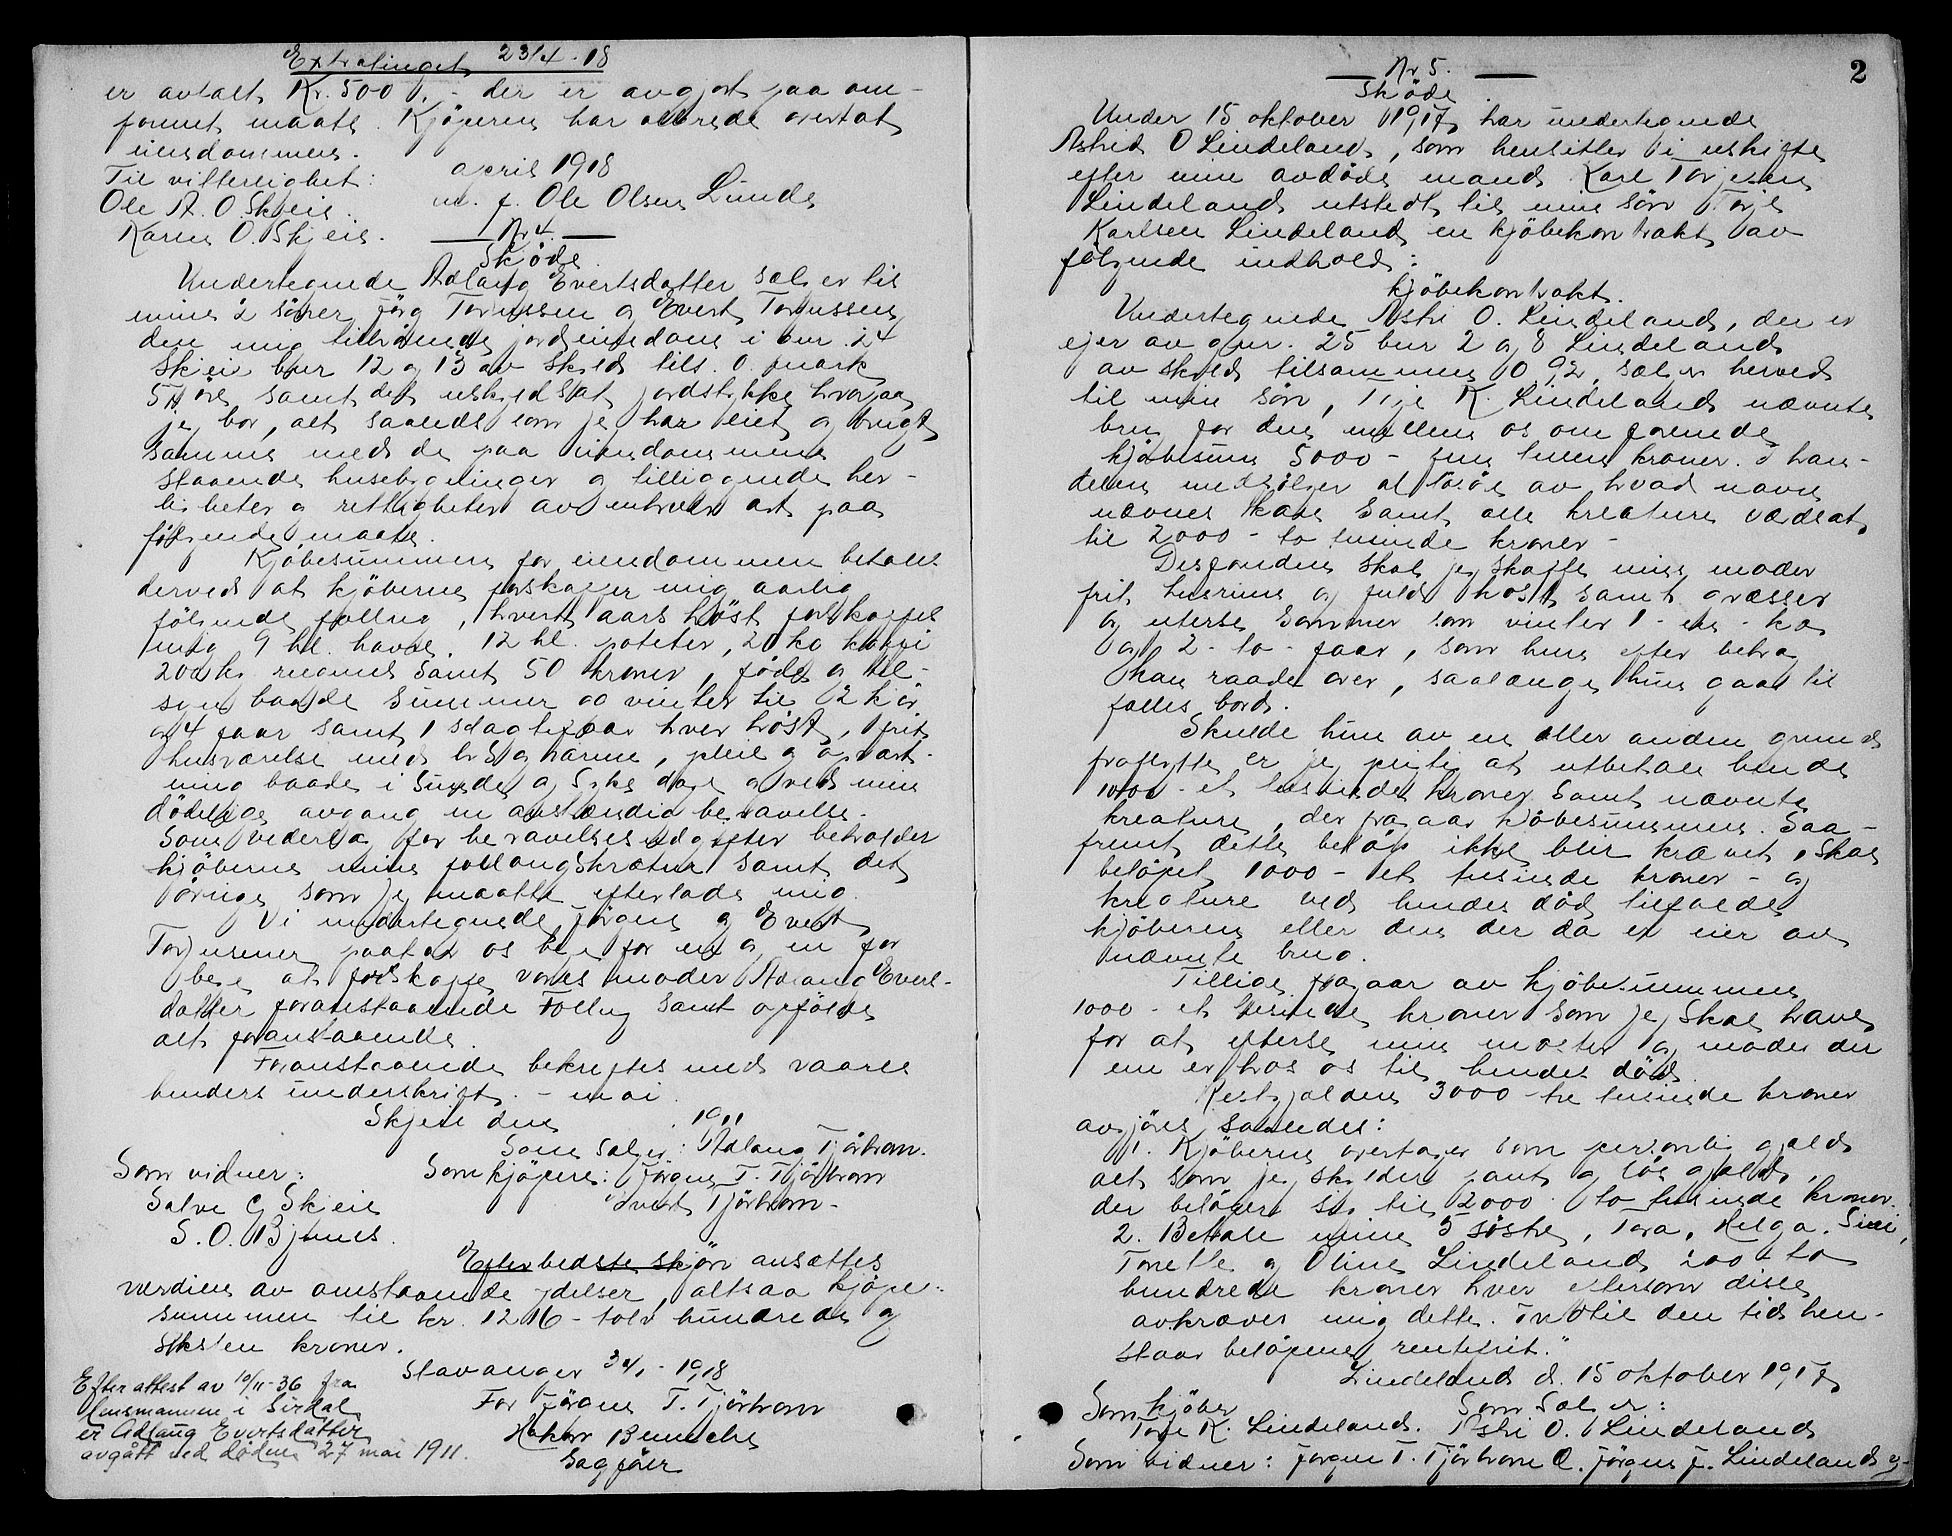 Extratinget 23/4-18
er avtalt Kr. 500,- der er avgjort paa om-
forenet maate. Kjöperen har allerede overtat
eiendommen.
april 1918
Til vitterlighet:
m. f. Ole Olsen Lunde
Ole A. O Skjeie.
Karen O. Skjeie.
Nr 4.
Sköde.
Undertegnede Adlaug Evertsdatter sælger til
mine 2 sönner Jörg Torjussen og Evert Torjussen
den mig tilhörende jordeiendom i gnr. 24
Skeie bnr 12 og 13 av skyld tils. 0. mark
54 öre samt det uskyldsat jordstykke hvorpaa
jeg bor, alt saaledes som jeg har eiet og brugt
samme med de paa eiendommene
staaende husebygninger og tilliggende her-
ligheter og rettigheter av enhver art paa
følgende maate.
Kjöbesummen for eiendommen betales
derved at kjöberne forskaffer mig aarlig
fölgende follaug, hvert aars höst forskaffes
mig 9 hl. havre, 12 hl. poteter, 20 kg kaffi
200 kg rugmel samt 50 kroner, föde og til-
syn baade sommer og vinter til 2 kjör
og 4 faar samt 1 slagtefaar hver höst, frit
husværelse med lys og varme, pleie og opvart-
ning baade i sunde og syke dage og ved min
dödelige avgang en anstændig begravelse.
Som vederlag for begravelsesudgifter beholder
kjöberne mine follaugskrætur samt det
övrige som jeg maatte efterlade mig.
Vi undertegnede Jörgen og Evert
Torjusener paatar os beje for en og en for
beje at forskaffe vores moder Adlaug Everts-
datter foranstaaende Follug samt opfölde
alt foranstaaende.
Foranstaaende bekreftes med vaares
henders underskrift. - mai
Skjeie den 1911
Som sælger: Adlaug Tjörhom.
Som vidner: Som kjöpere: Jörgen T. Tjörhom
Salve G Skjeie Evert Tjörhom-
S. O. Bjunes.
Efter bedste skjön ansættes
værdien av omstaaende ydelser, altsaa kjöpe-
summen til kr. 1216 - tolv hundrede og
seksten kroner.
Stavanger 3/1 - 1918
For Jörgen T. Tjörhom
Haakon
Sagförer
Efter attest av 10/11-36 fra
lensmannen i Sirdal
er Adlaug Evertsdatter
avgått ved døden 27 mai 1911.
2
Nr 5.
Sköde.
Under 15 oktober 1917 har undertegnede
Astrid O Lindeland, som hensitter i uskifte
efter min avdöde mand Karl Torjesen
Lindeland utstedt til min sön Torje
Karlsen Lindeland en kjöbekontrakt av
fölgende indhold:
Kjöbekontrakt.
Undertegnede Astri O. Lindeland, der er
ejer av gnr. 25 bnr 2 og 8 Lindeland
av skyld tilsammen 0 92, sælger herved
til min sön, Torje K. Lindeland nævnte
bruk for den mellem os omforenede
kjöbesum 5000 - fem tusen kroner. I han-
delen medfölger alt löse av hvad navn
nævnes kan samt alle kreature værdsat
til 2000 - to tusinde kroner -
Desforuden skal jeg skaffe min moder
frit husrum og fuld kost samt græsser
og efterse sommer som vinter 1 - en - ko
og 2 - to - faar, som hun efter behag
kan raade over, saalænge hun gaar til
fælles bord.
Skulde hun av en eller anden grund
fraflytte er jeg pligtig at utbetale hende
1000 - et tusinde kroner samt nævnte
kreature, der fragaar kjöbesummen. Saa-
fremt dette belöp ikke blir krævet, skal
belöpet 1000 - et tusinde kroner - og
kreature ved hendes död tilfalde
kjöberen eller den der da er eier av
nævnte bruk.
Tillige fragaar av kjöbesummen
1000 - et tusinde kroner som jeg skal have
for at efterse min moster og moder der
en er hos os til hendes död.
Restgjælden 3000 - tre tusinde kroner
avgjöres saaledes:
1. Kjöberen overtager som personlig gjæld
alt som jeg skylder pant og lös gjæld,
der belöper sig til 2000 - to tusinde kroner.
2. Betale mine 5 söstre, Tora, Helga, Siri,
Tonette og Oline Lindeland 200 to
hundrede kroner hver eftersom disse
avkræver mig dette. Indtil den tid hen-
staar belöpene rentefrit."
Lindeland d. 15 oktober 1917
Som kjöber Som Sælger:
Torje K. Lindeland. Astri O. Lindeland
Som vidner: Jörgen T. Tjörhom O. Jörgen J. Lindeland og